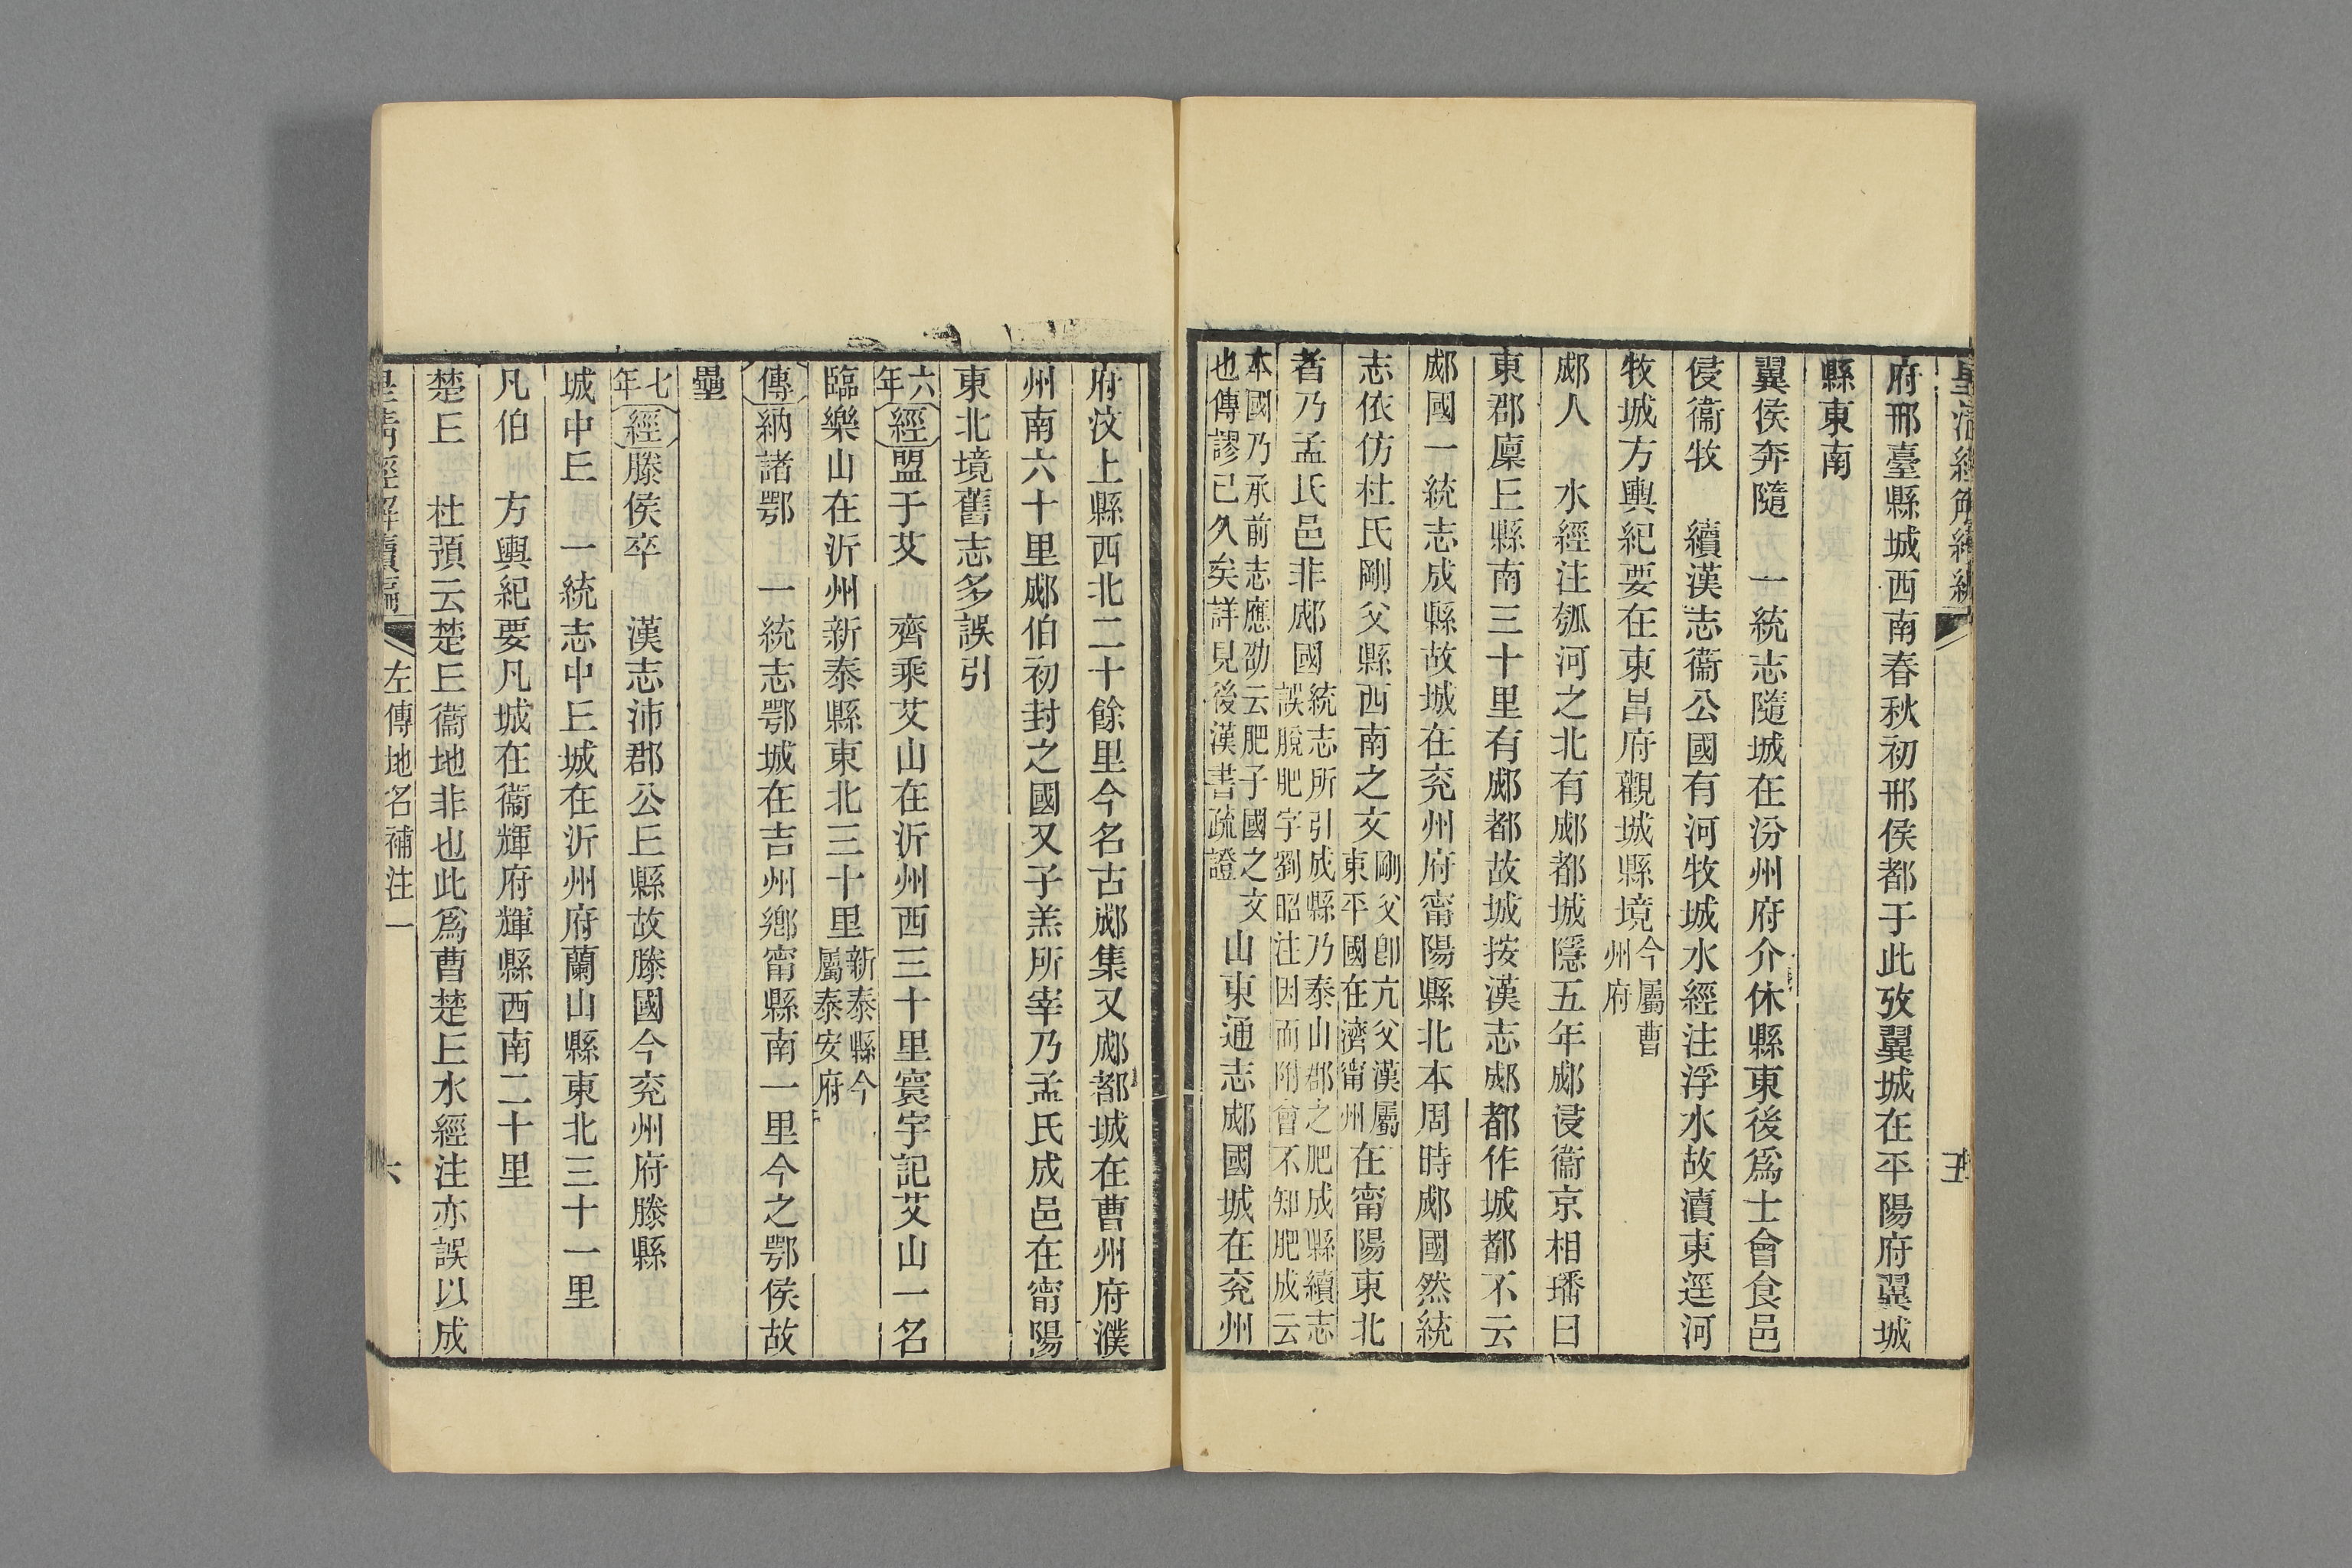 皇清經解續編
五
府邢臺縣城西南春秋初邢侯都于此攷翼城在平陽府翼城
縣東南
翼侯奔隨　一統志隨城在汾州府介休縣東後爲士會食邑
侵衞牧　續漢志衞公國有河牧城水經注浮水故瀆東逕河
牧城方輿紀要在東昌府觀城縣境今屬曹州府
郕人　水經注瓠河之北有郕都城隱五年郕侵衞京相璠曰
東郡廩𠀉縣南三十里有郕都故城按漢志郕都作城都不云
郕國一統志成縣故城在兖州府甯陽縣北本周時郕國然統
志依仿杜氏剛父縣西南之文剛父卽亢父漢屬東平國在濟甯州在甯陽東北
者乃孟氏邑非郕國統志所引成縣乃泰山郡之肥成縣續志誤脫肥字劉昭注因而附會不知肥成云
本國乃承前志應劭云肥子國之文也傳謬已久矣詳見後漢書疏證山東通志郕國城在兖州
府汶上縣西北二十餘里今名古郕集又郕都城在曹州府濮
州南六十里郕伯初封之國又子羔所宰乃孟氏成邑在甯陽
東北境舊志多誤引
六年經盟于艾　齊乘艾山在沂州西三十里寰宇記艾山一名
臨樂山在沂州新泰縣東北三十里新泰縣今屬泰安府
傳納諸鄂　一統志鄂城在吉州鄉甯縣南一里今之鄂侯故
壘
七年經滕侯卒　漢志沛郡公𠀉縣故滕國今兖州府滕縣
城中𠀉　一統志中𠀉城在沂州府蘭山縣東北三十一里
凡伯　方輿紀要凡城在衞輝府輝縣西南二十里
楚𠀉　杜預云楚𠀉衞地非也此爲曹楚𠀉水經注亦誤以成
皇清經解續編
左傳地名補注一
六